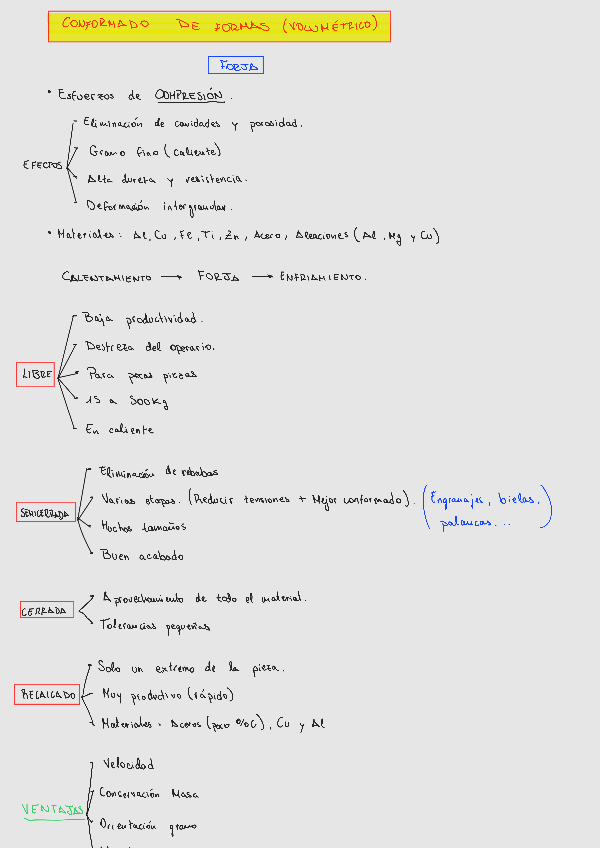 CONFORMADO DE FORMAS (VOLUMÉTRICO)
FORJA
• Esfuerzos de COMPRESIÓN.
EFECTOS
Eliminación de cavidades y porosidad.
Grano fino (caliente)
Alta dureza y resistencia.
Deformación intergranular.
• Materiales: Al, Cu, Fe, Ti, Zn, Acero, Aleaciones (Al, Mg y Cu)
CALENTAMIENTO → FORJA → ENFRIAMIENTO.
LIBRE
Baja productividad.
Destreza del operario.
Para pocas piezas
15 a 500Kg
En caliente
SEMICERRADA
Eliminación de rebabas
Varias etapas. (Reducir tensiones + Mejor conformado). (Engranajes, bielas,
palancas...)
Muchos tamaños
Buen acabado
CERRADA
Aprovechamiento de todo el material.
Tolerancias pequeñas
RECALCADO
Solo un extremo de la pieza.
Muy productivo (rápido)
Materiales: Aceros (poco %C), Cu y Al
VENTAJAS
Velocidad
Conservación Masa
Orientación grano